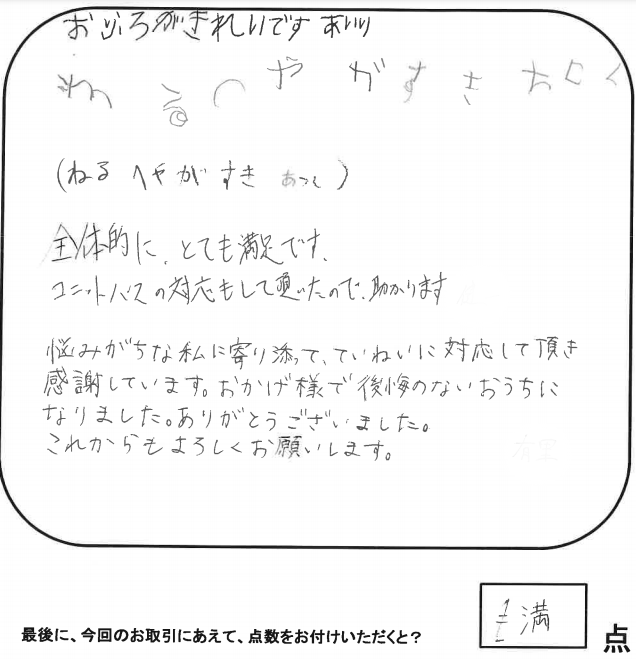 おふろがきれいです あいり
ねるへやがすき
(ねる へやがすき)
全体的に、とても満足です。
ユニットバスの対応もして頂いたので、助かります
悩みがちな私に寄り添って、ていねいに対応して頂き
感謝しています。おかげ様で後悔のないおうちに
なりました。ありがとうございました。
これからもよろしくお願いします。
満
点
最後に、今回のお取引にあえて、点数をお付けいただくと?